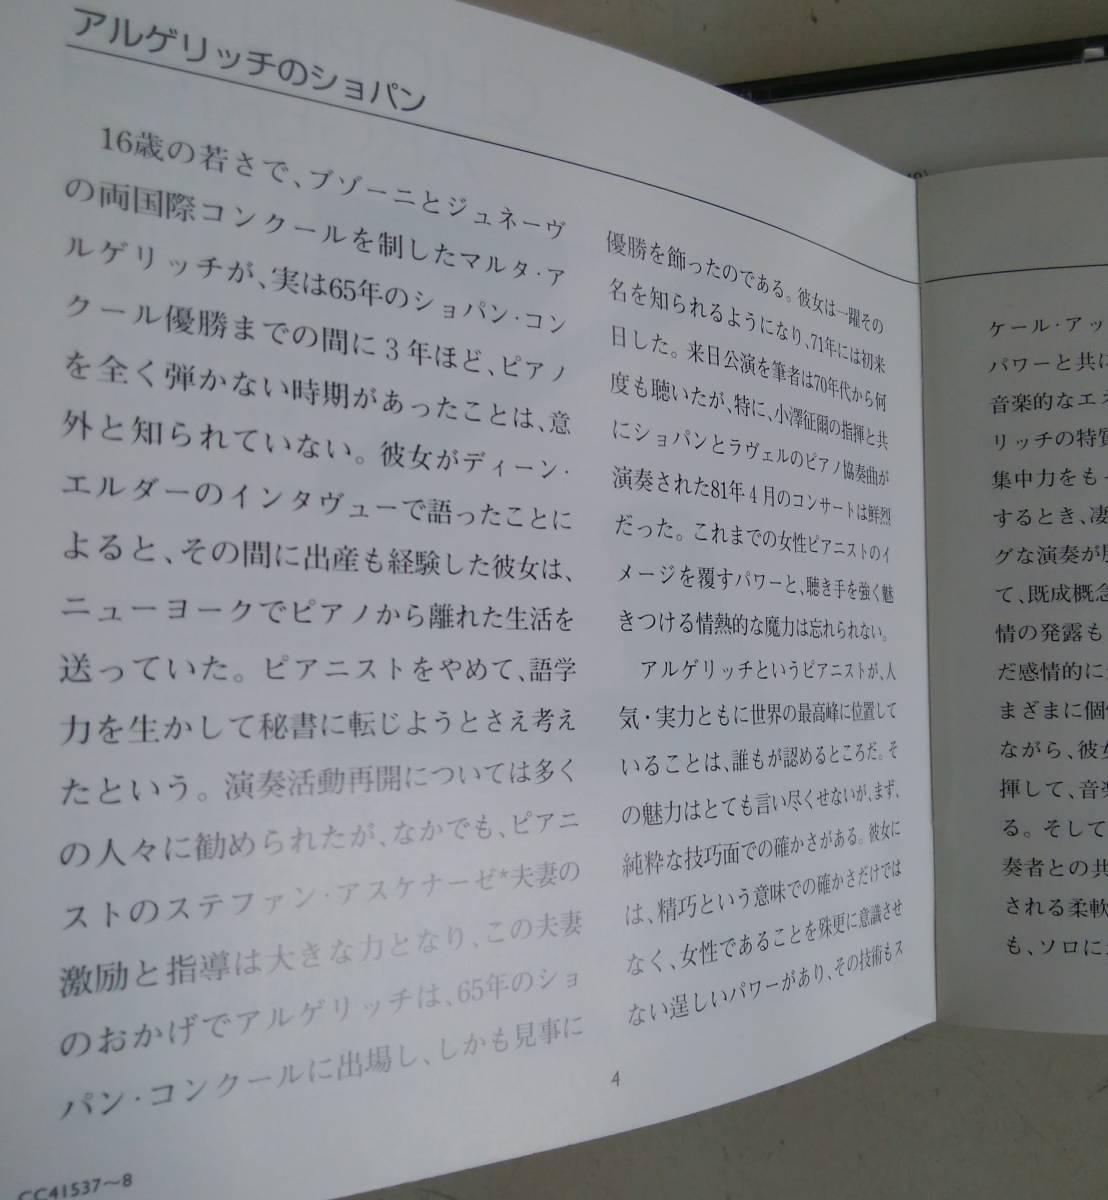 アルゲリッチのショパン
16歳の若さで、ブゾーニとジュネーヴ
の両国際コンクールを制したマルタ・ア
ルゲリッチが、実は65年のショパン・コン
クール優勝までの間に3年ほど、ピアノ
を全く弾かない時期があったことは、意
外と知られていない。彼女がディーン・
エルダーのインタヴューで語ったことに
よると、その間に出産も経験した彼女は、
ニューヨークでピアノから離れた生活を
送っていた。ピアニストをやめて、語学
力を生かして秘書に転じようとさえ考え
たという。演奏活動再開については多く
の人々に勧められたが、なかでも、ピアニ
ストのステファン・アスケナーゼ*夫妻の
激励と指導は大きな力となり、この夫妻
のおかげでアルゲリッチは、65年のショ
パン・コンクールに出場し、しかも見事に
優勝を飾ったのである。彼女は一躍その
名を知られるようになり、71年には初来
日した。来日公演を筆者は70年代から何
度も聴いたが、特に、小澤征爾の指揮と共
にショパンとラヴェルのピアノ協奏曲が
演奏された81年4月のコンサートは鮮烈
だった。これまでの女性ピアニストのイ
メージを覆すパワーと、聴き手を強く魅
きつける情熱的な魔力は忘れられない。
アルゲリッチというピアニストが、人
気・実力ともに世界の最高峰に位置して
いることは、誰もが認めるところだ。そ
の魅力はとても言い尽くせないが、まず、
純粋な技巧面での確かさがある。彼女に
は、精巧という意味での確かさだけでは
なく、女性であることを殊更に意識させ
ない逞しいパワーがあり、その技術もス
4
CC41537～8
ケール・アッ
パワーと共に
音楽的なエネ
リッチの特質
集中力をもっ
するとき、凄
グな演奏が
て、既成概念
情の発露も
だ感情的に
まざまに個
ながら、彼女
揮して、音楽
る。そして
奏者との共
される柔軟
も、ソロに